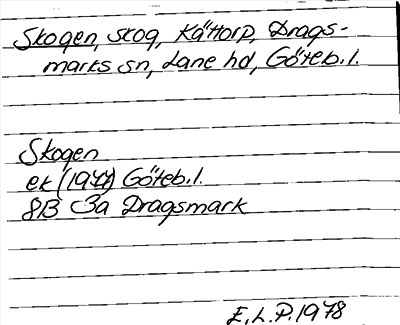 Skogen, skog, Kättorp, Drags-
marks sn, Lane hd, Göteb. l.
Skogen
ek (1977) Göteb. l.
8B 3a Dragsmark
E.L.P. 1978